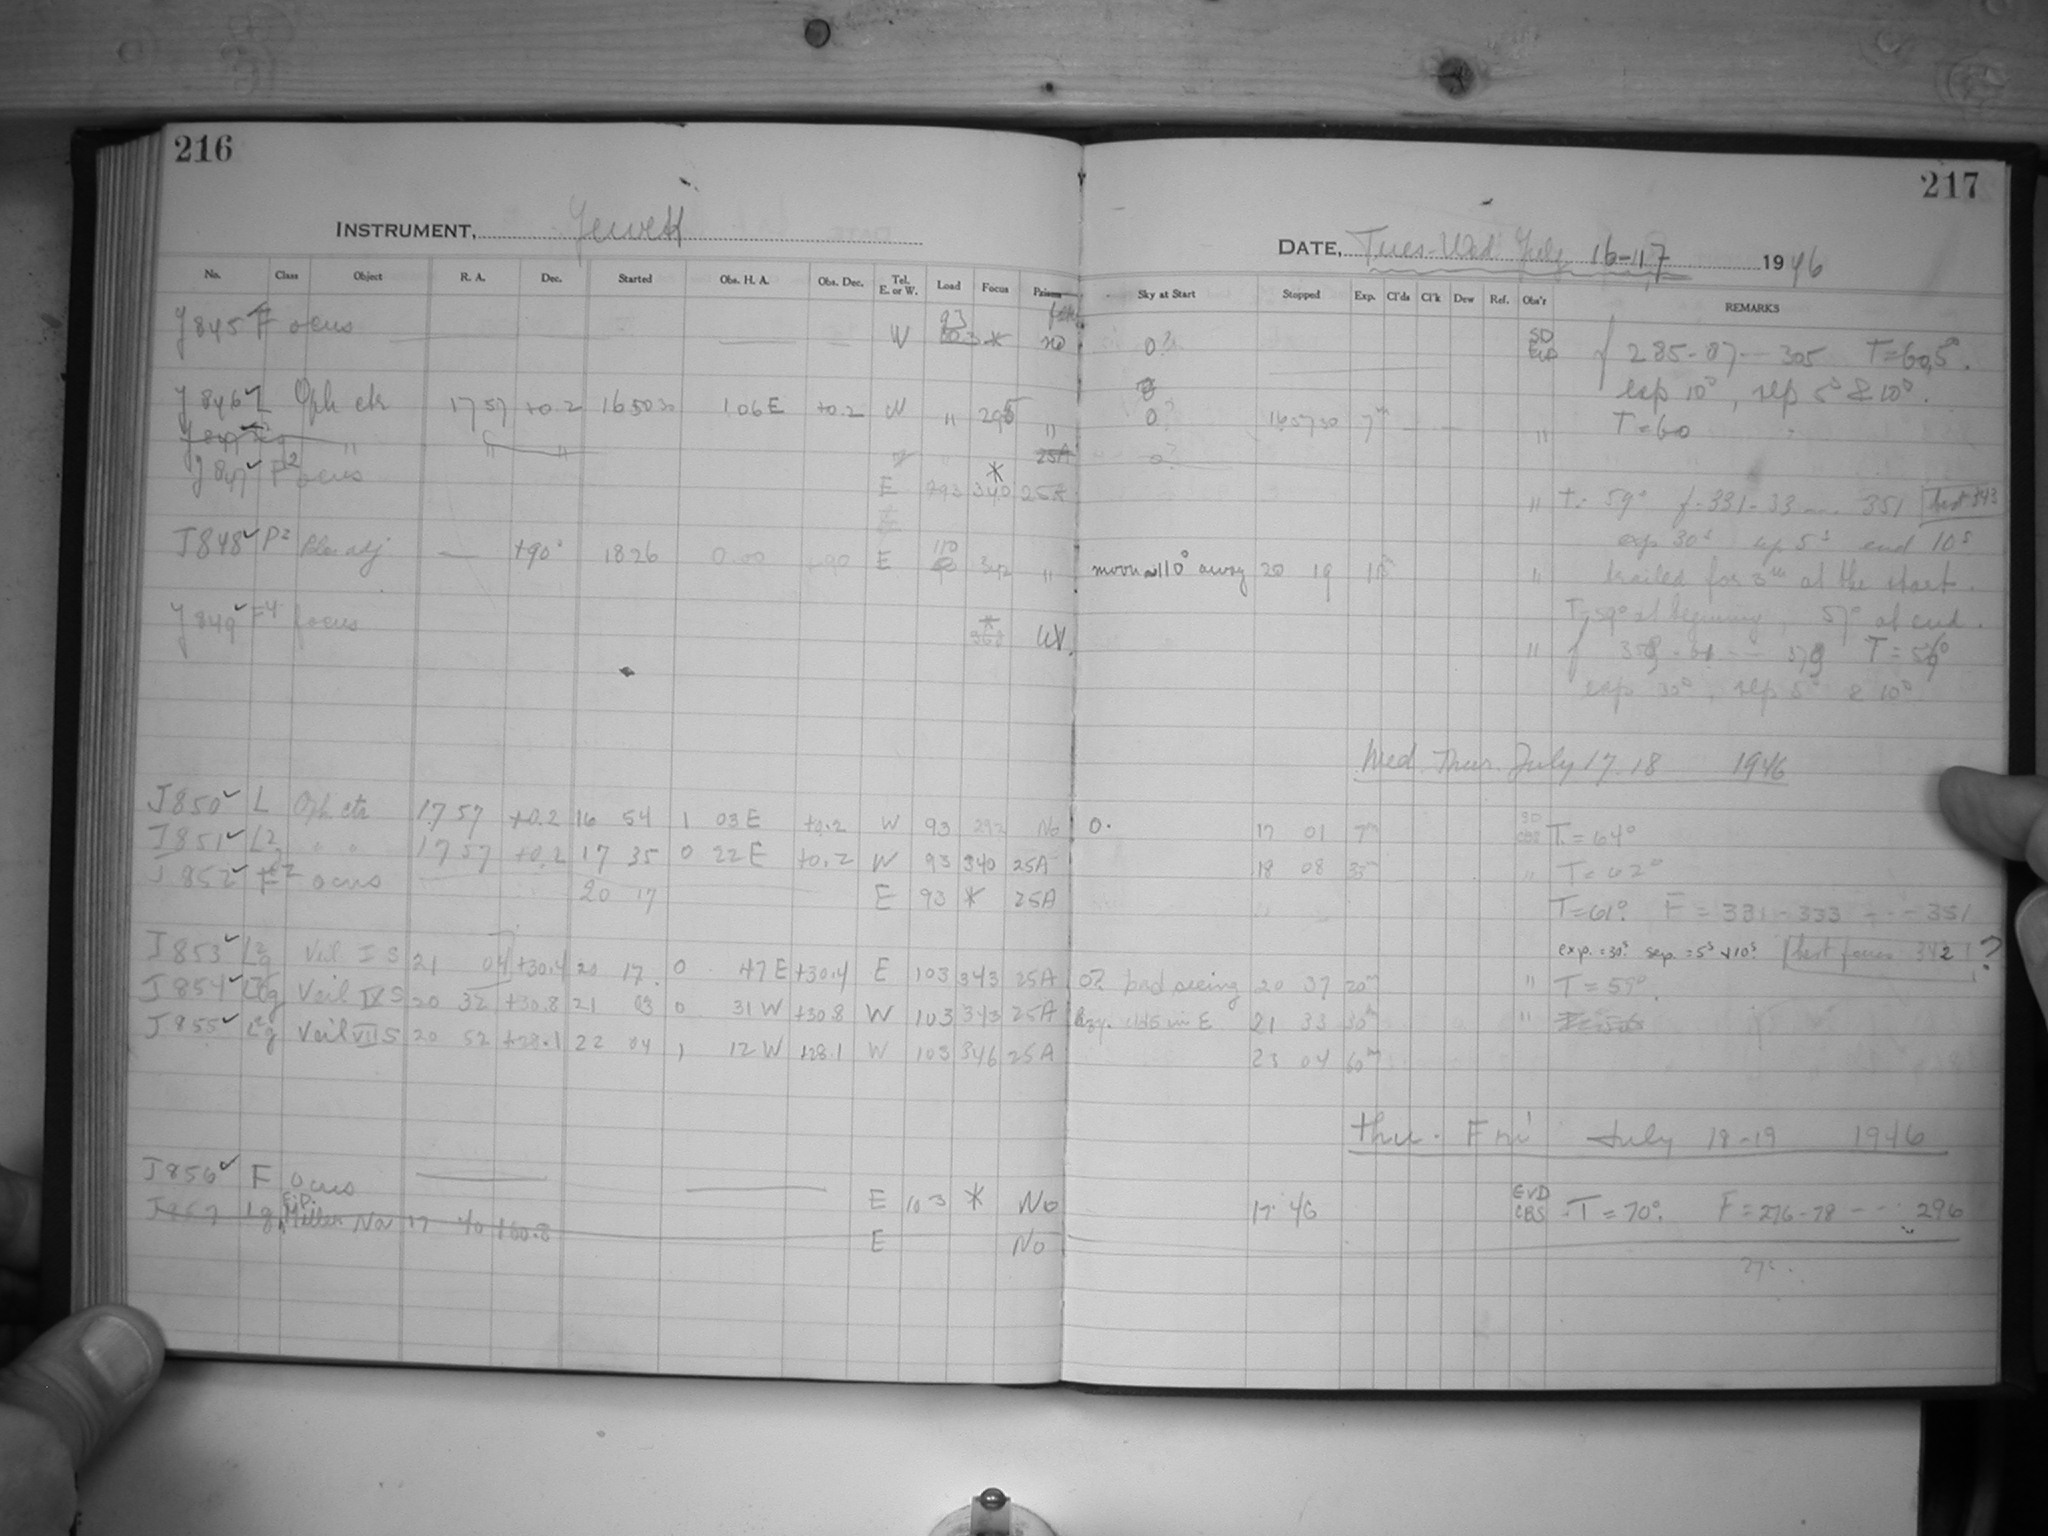 216
INSTRUMENT, Jewett
No. Class Object R. A. Dec. Started Obs. H. A. Obs. Dec. Tel. E. or W. Load Focus Prism
J845 Focus W 93 * no
J846 L Oph ctr 17 57 +0.2 165030 1 06 E +0.2 W " 295 "
" " " 25A
J847 F2 ocus E 293 340 * 25A
J848 P2 Polar adj — +90° 1826 0.00 +90 E 110 342 "
J849 F4 focus 368 * UV.
J850 L Oph ctr 17 57 +0.2 16 54 1 03 E +0.2 W 93 292 No
J851 L2g " " 17 57 +0.2 17 35 0 22 E +0.2 W 93 340 25A
J852 F2 ocus 20 17 E 93 * 25A
J853 L2g Veil I S 21 04 +30.4 20 17. 0 47 E +30.4 E 103 343 25A
J854 L2g Veil IV S 20 32 +30.8 21 03 0 31 W +30.8 W 103 343 25A
J855 L2g Veil VII S 20 52 +28.1 22 04 1 12 W +28.1 W 103 346 25A
J856 F ocus E 103 * No
J857 Lg E.P. Miller Nov 17 40 +60.8 E No
217
DATE, Tues-Wed July 16-17 1946
Sky at Start Stopped Exp. Cl'ds Cl'k Dew Ref. Obs'r REMARKS
0? SD EVD f 285-87--- 305 T=60.5°.
exp 10s, sep 5s & 10s.
0? 165730 7m — — " T=60
0?
" T= 59° f-331-33 ... 351 best 343
exp 30s sep 5s end 10s
moon ~110° away 20 19 " trailed for 3m at the start.
T=59° at beginning, 57° at end.
" f T=56°
exp 30s, sep 5s & 10s
Wed Thur. July 17.18 1946
0. 17 01 7m SD CBS T.=64°
18 08 33m " T=62°
T=61°. F=331-333 --- 351
exp.=30s. sep.=5s & 10s. best focus 342 ?
0? bad seeing 20 37 20m " T=59°.
Hzy. clds in E 21 33 30m "
23 04 60m
Thu. Fri July 18-19 1946
17 46 EVD CBS T=70°. F=276-78 --- 296